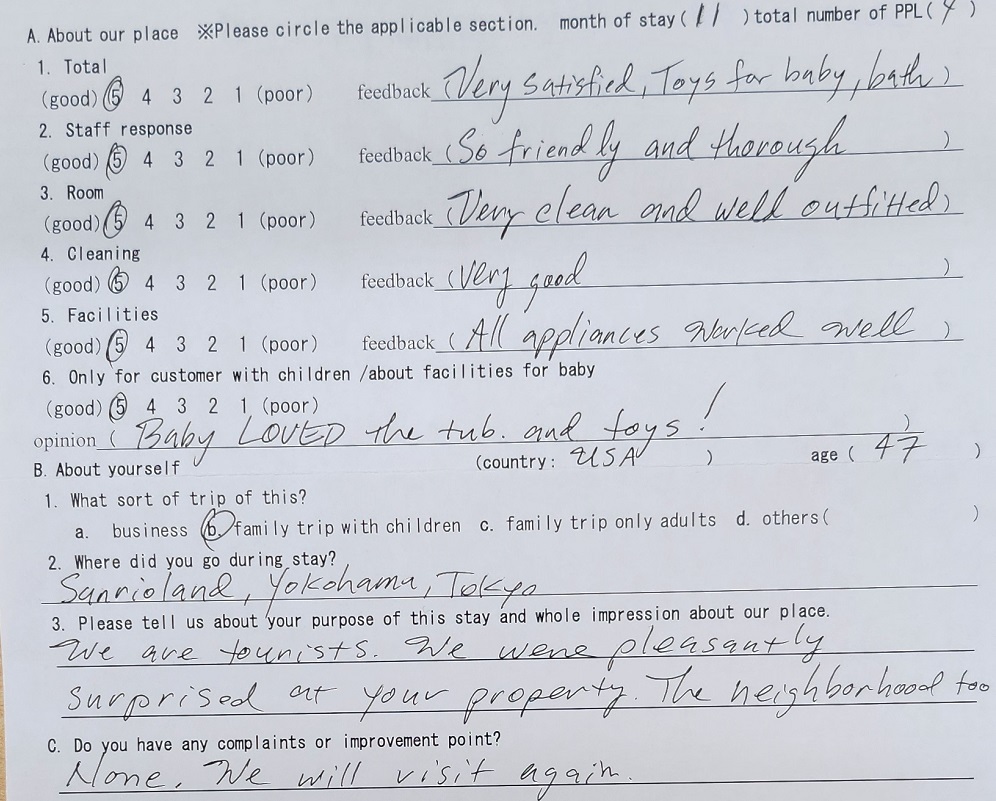 A. About our place ※Please circle the applicable section. month of stay ( 11 ) total number of PPL( 4 )
1. Total
(good) 5 4 3 2 1 (poor) feedback (Very satisfied, Toys for baby, bath)
2. Staff response
(good) 5 4 3 2 1 (poor) feedback (So friendly and thorough )
3. Room
(good) 5 4 3 2 1 (poor) feedback (Very clean and well outfitted)
4. Cleaning
(good) 5 4 3 2 1 (poor) feedback (very good )
5. Facilities
(good) 5 4 3 2 1 (poor) feedback ( All appliances worked well )
6. Only for customer with children /about facilities for baby
(good) 5 4 3 2 1 (poor)
opinion ( Baby LOVED the tub. and toys! )
B. About yourself (country: USA ) age ( 47 )
1. What sort of trip of this?
a. business b. family trip with children c. family trip only adults d. others( )
2. Where did you go during stay?
Sanrioland, Yokohama, Tokyo
3. Please tell us about your purpose of this stay and whole impression about our place.
We are tourists. We were pleasantly
surprised at your property. The neighborhood too
C. Do you have any complaints or improvement point?
None. We will visit again.